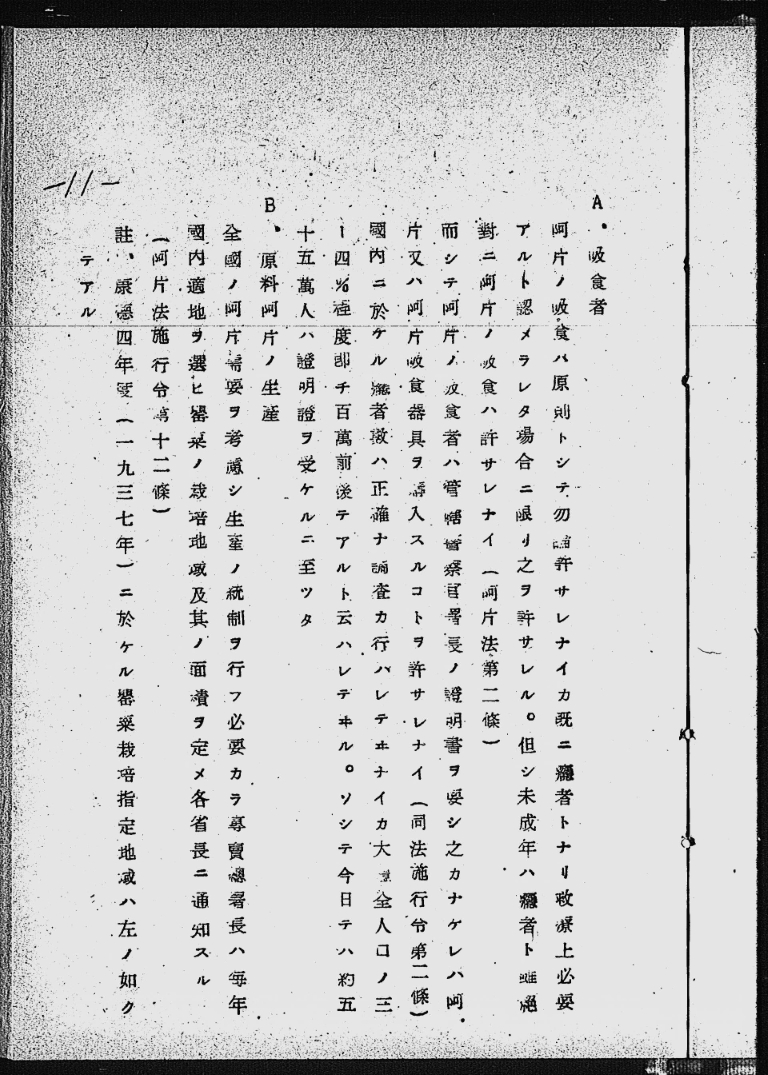 A．吸食者
阿片ノ吸食ハ原則トシテ勿論許サレナイカ既ニ癮者トナリ救療上必要
アルト認メラレタ場合ニ限リ之ヲ許サレル。但シ未成年ハ癮者ト雖絕
對ニ阿片ノ吸食ハ許サレナイ（阿片法第二條）
而シテ阿片ノ吸食者ハ管轄警察官署長ノ證明書ヲ要シ之カナケレハ阿
片又ハ阿片吸食器具ヲ購入スルコトヲ許サレナイ（同法施行令第二條）
國內ニ於ケル癮者數ハ正確ナ調査カ行ハレテヰナイカ大全人口ノ三
ー四％程度卽チ百萬前後テアルト云ハレテヰル。ソシテ今日テハ約五
十五萬人ハ證明證ヲ受ケルニ至ツタ
B．原料阿片ノ生產
全國ノ阿片需要ヲ考慮シ生產ノ統制ヲ行フ必要カラ專賣總署長ハ每年
國內適地ヲ選ヒ罌粟ノ栽培地域及其ノ面積ヲ定メ各省長ニ通知スル
（阿片法施行令第十二條）
註、康德四年度（一九三七年）ニ於ケル罌粟栽培指定地域ハ左ノ如ク
テアル
-11-